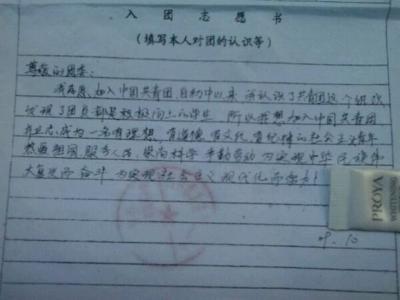 入团志愿书
(填写本人对团的认识等)
尊敬的团委:
我志愿加入中国共青团 自初中以来 我认识了共青团这个组织
发现了团员都是积极向上的学生 所以我想加入中国共青团
成为一名有理想 有道德 有文化 有纪律的社会主义青年
热爱祖国 服务人民 崇尚科学 辛勤劳动 为实现中华民族伟
大复兴而奋斗 为实现社会主义现代化而
PROYA